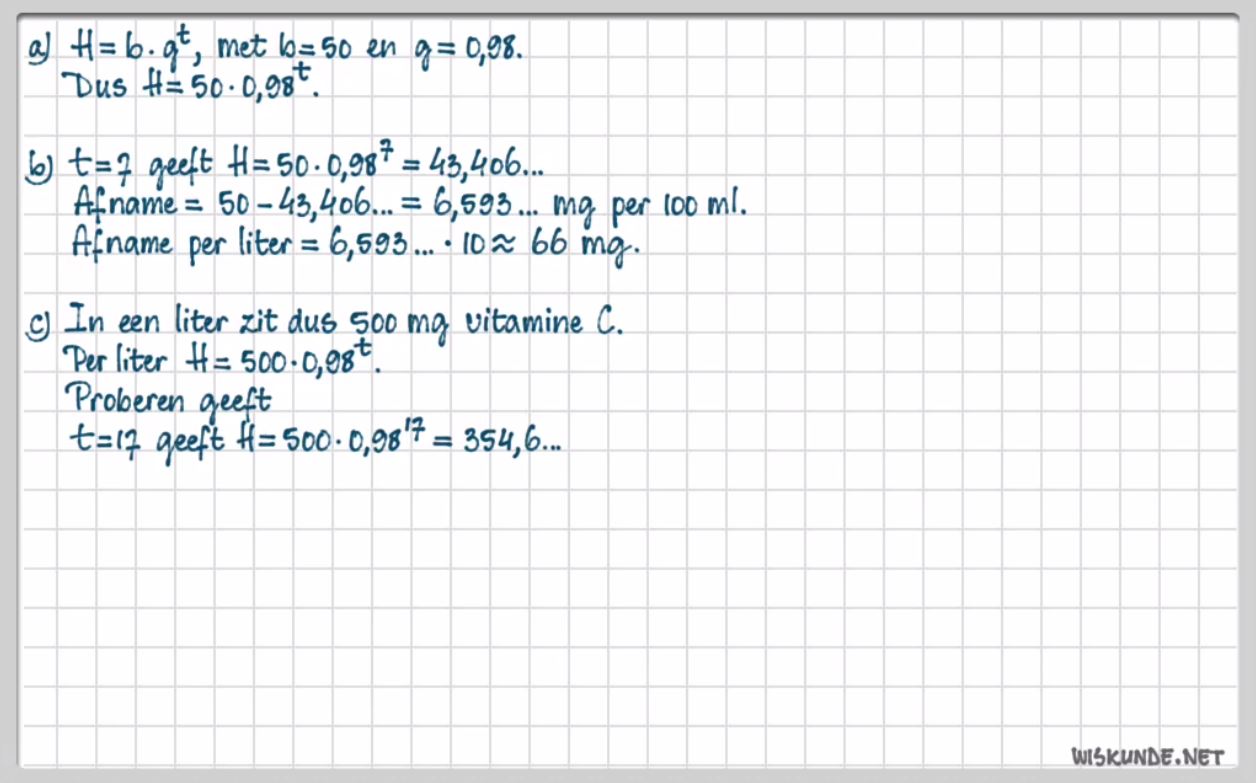 a) H = b · g^t, met b = 50 en g = 0,98.
Dus H = 50 · 0,98^t.
b) t = 7 geeft H = 50 · 0,98^7 = 43,406...
Afname = 50 – 43,406... = 6,593... mg per 100 ml.
Afname per liter = 6,593... · 10 ≈ 66 mg.
c) In een liter zit dus 500 mg vitamine C.
Per liter H = 500 · 0,98^t.
Proberen geeft
t = 17 geeft H = 500 · 0,98^17 = 354,6...
WISKUNDE.NET